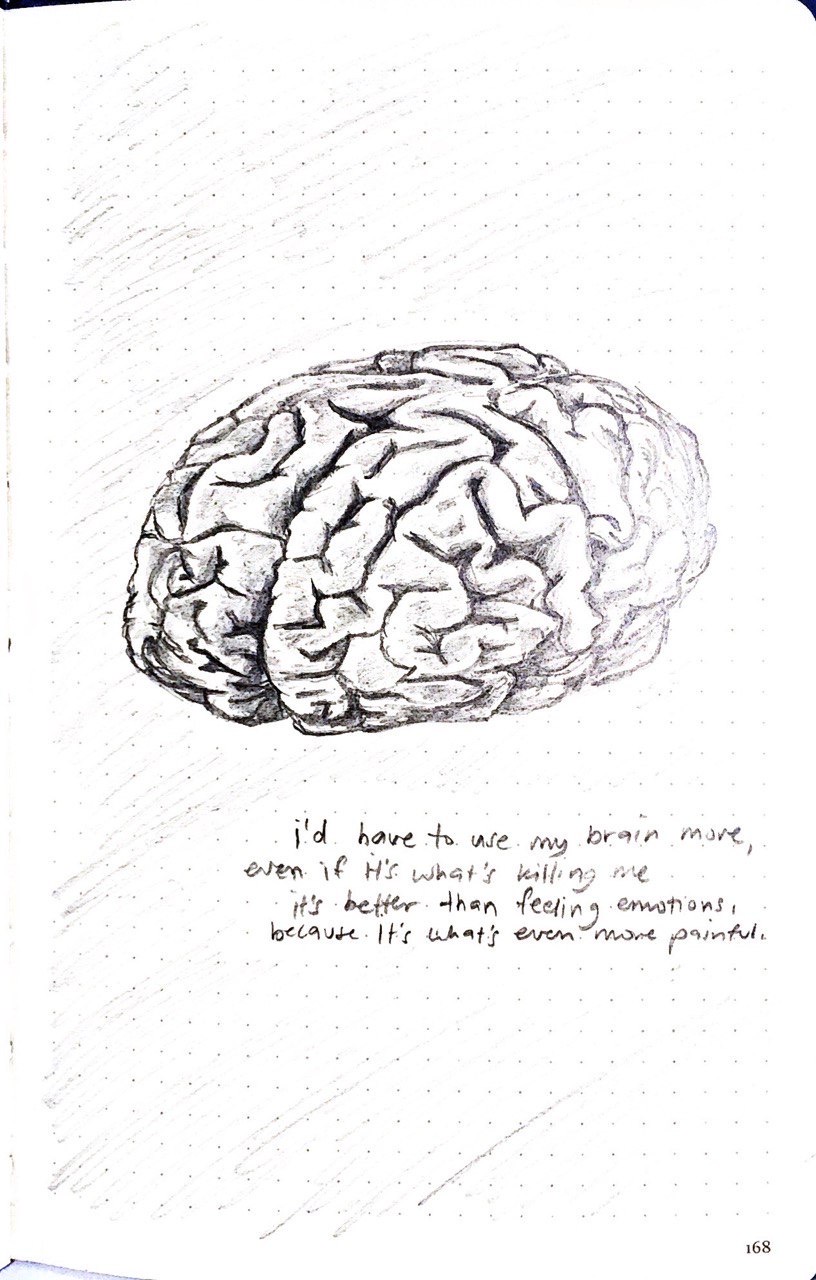 i'd have to use my brain more,
even if it's what's killing me
it's better than feeling emotions,
because it's what's even more painful.
168